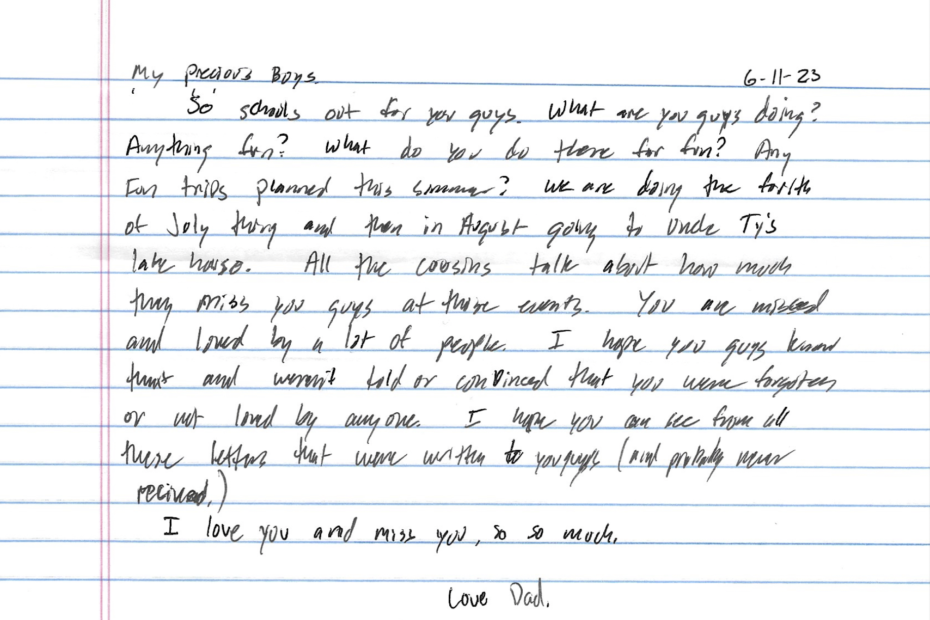 My Precious Boys. 6-11-23
So schools out for you guys. What are you guys doing?
Anything fun? What do you do there for fun? Any
Fun trips planned this summer? We are doing the forth
of July thing and then in August going to Uncle Ty's
lake house. All the cousins talk about how much
they miss you guys at those events. You are missed
and loved by a lot of people. I hope you guys know
that and weren't told or convinced that you were forgotten
or not loved by anyone. I hope you can see from all
these letters that were written to you guys (and probably never
recieved.)
I love you and miss you, so so much.
Love Dad.